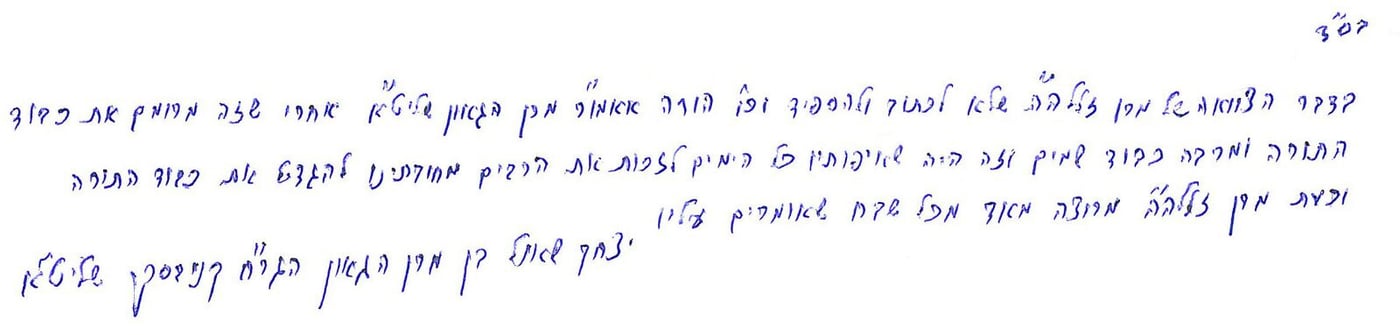 בס"ד
בדבר הצוואה של מרן זללה"ה שלא לכתוב ולהספיד וכו' הורה אאמו"ר מרן הגאון שליט"א אחרי שזה מרומם את כבוד
התורה ומרבה כבוד שמים וזה היה שאיפותיו כל הימים לזכות את הרבים מחובתינו להגדיל את כבוד התורה
וכעת מרן זללה"ה מרוצה מאוד מכל שבח שאומרים עליו
יצחק שאול בן מרן הגאון הגר"ח קנייבסקי שליט"א